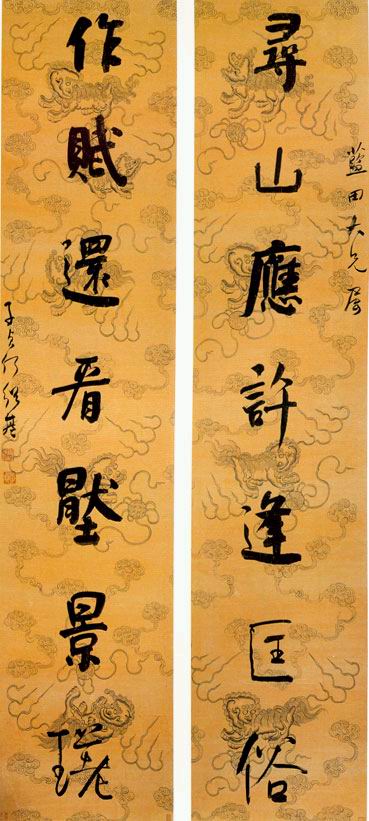 尋山應許逢匡俗
藍田大兄屬
作賦還看壓景瑳
子貞何紹基